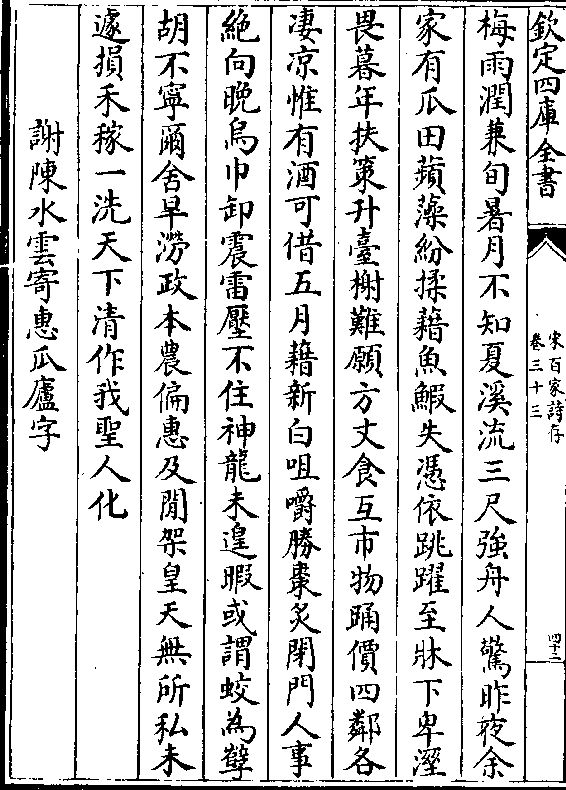 欽定四庫全書
宋百家詩存
卷三十三
四十二
梅雨潤兼旬暑月不知夏溪流三尺強舟人驚昨夜余
家有瓜田蘋藻紛揉藉魚鰕失憑依跳躍至牀下卑溼
畏暮年扶策升臺榭難願方丈食互市物踊價四鄰各
凄凉惟有酒可借五月藉新白咀嚼勝棗炙閉門人事
絶向晚烏巾卸震雷壓不住神龍未遑暇或謂蛟為孽
胡不寧爾舍旱澇政本農偏惠及閒架皇天無所私未
遽損禾稼一洗天下清作我聖人化
謝陳水雲寄惠瓜廬字